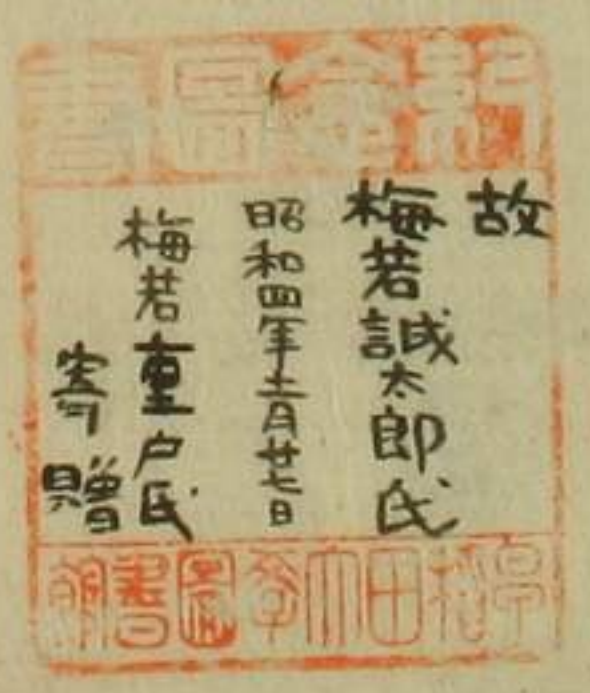 紀念圖書
故
梅若誠太郎氏
昭和四年十二月廿七日
梅若重户氏
寄贈
早稻田大學圖書館